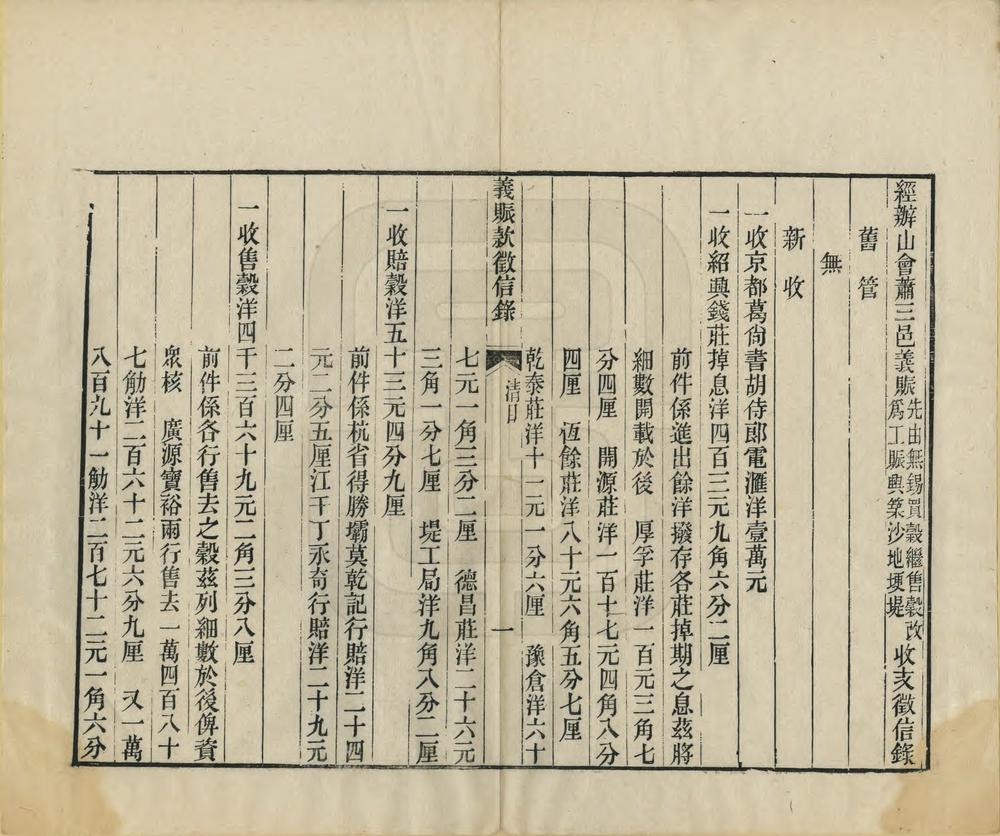 經辦山會蕭三邑義賑先由無錫買穀繼售穀改爲工賑興築沙地埂堤收支徵信錄
舊管
無
新收
一收京都葛尙書胡侍郎電滙洋壹萬元
一收紹興錢莊掉息洋四百三元九角六分二厘
前件係進出餘洋撥存各莊掉期之息茲將
細數開載於後　厚孚莊洋一百元三角七
分四厘　開源莊洋一百十七元四角八分
四厘　恆餘莊洋八十元六角五分七厘
乾泰莊洋十一元一分六厘　豫倉洋六十
義賑款徵信錄　清目　一
七元一角三分二厘　德昌莊洋二十六元
三角一分七厘　堤工局洋九角八分二厘
一收賠穀洋五十三元四分九厘
前件係杭省得勝壩莫乾記行賠洋二十四
元二分五厘江干丁永奇行賠洋二十九元
二分四厘
一收售穀洋四千三百六十九元二角三分八厘
前件係各行售去之穀茲列細數於後俾資
衆核　廣源寶裕兩行售去一萬四百八十
七觔洋二百六十二元六分九厘　又一萬
八百九十一觔洋二百七十二元一角六分